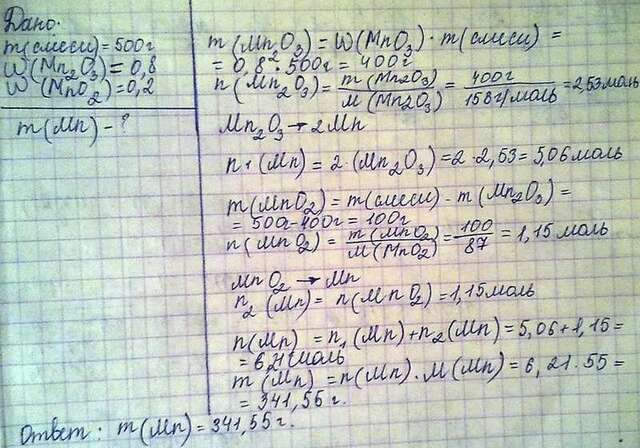 Дано:
m(смеси) = 500г
W(Mn₂O₃) = 0,8
W(MnO₂) = 0,2
m(Mn) - ?
m(Mn₂O₃) = W(MnO₃) · m(смеси) =
= 0,8 · 500г = 400г
n(Mn₂O₃) = m(Mn2O3) / M(Mn2O3) = 400г / 158г/моль = 2,53моль
Mn₂O₃ → 2Mn
n₁(Mn) = 2·(Mn₂O₃) = 2·2,53 = 5,06 моль
m(MnO₂) = m(смеси) - m(Mn₂O₃) =
= 500г - 400г = 100г
n(MnO₂) = m(MnO₂) / M(MnO₂) = 100 / 87 = 1,15 моль
MnO₂ → Mn
n₂(Mn) = n(MnO₂) = 1,15моль
n(Mn) = n₁(Mn) + n₂(Mn) = 5,06 + 1,15 =
= 6,21моль
m(Mn) = n(Mn) · M(Mn) = 6,21 · 55 =
= 341,55г.
Ответ: m(Mn) = 341,55г.